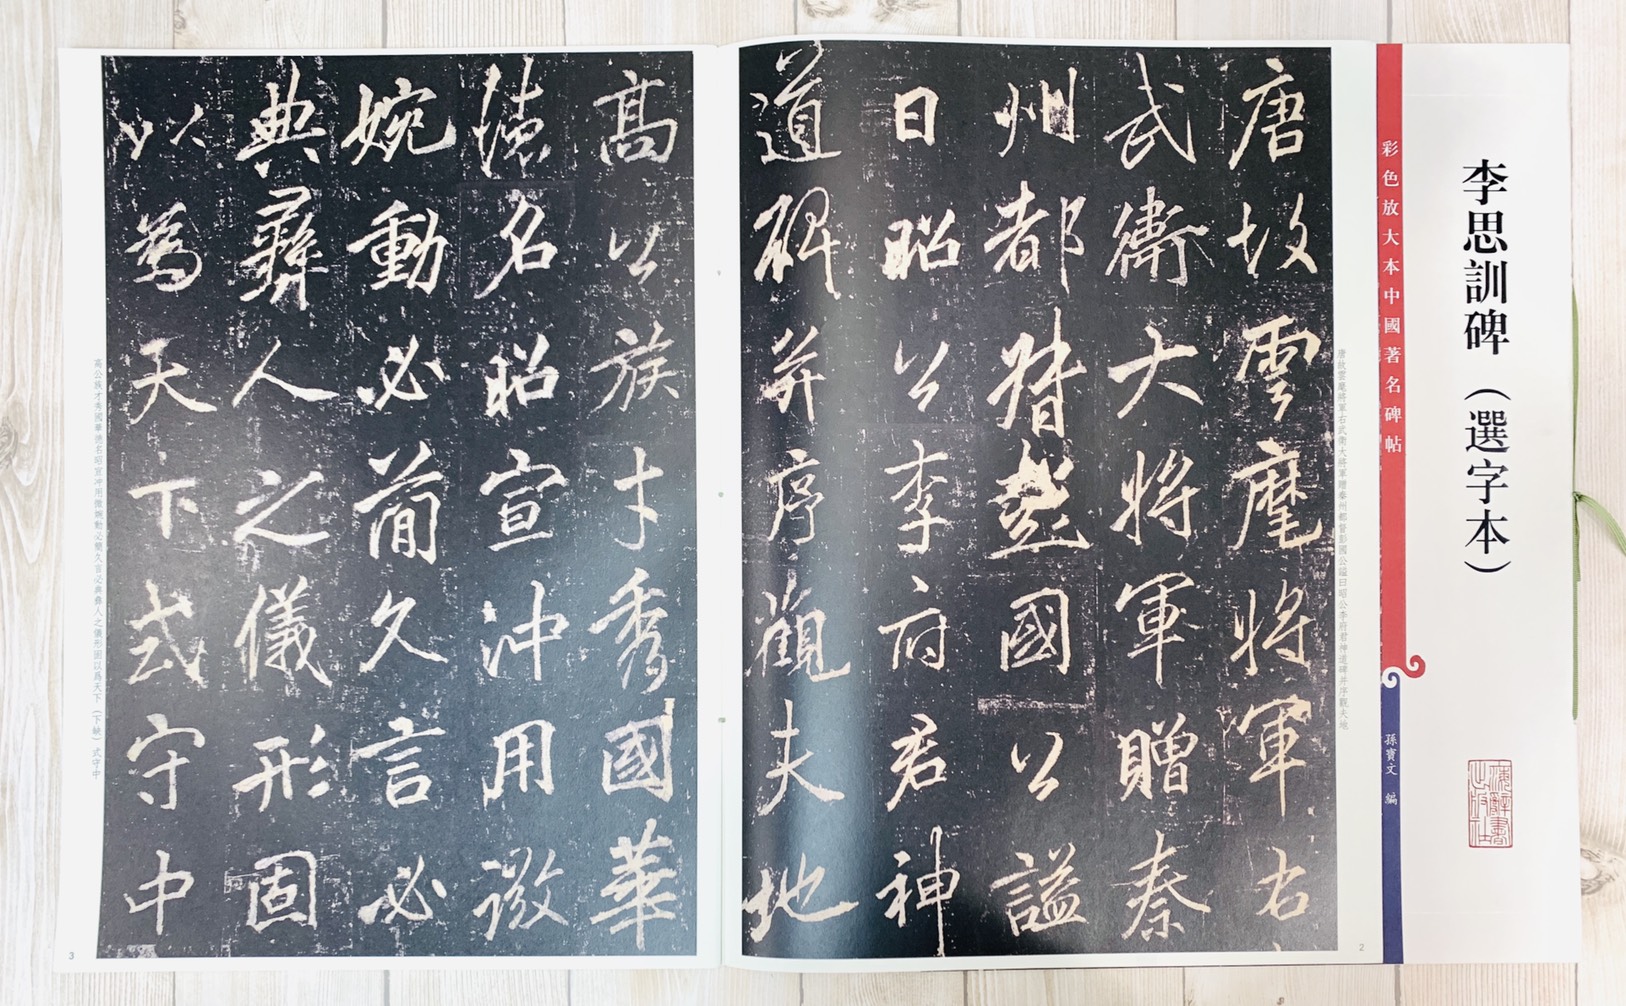 李思訓碑（選字本）
上海辭書出版社
彩色放大本中國著名碑帖
孫寶文 編
唐故雲麾將軍右武衛大將軍贈秦州都督彭國公謚曰昭公李府君神道碑并序觀夫地
唐故雲麾將軍右
武衛大將軍贈秦
州都督彭國公謚
曰昭公李府君神
道碑并序觀夫地
2
高公族才秀國華
德名昭宣沖用微
婉動必簡久言必
典彝人之儀形固
以為天下式守中
高公族才秀國華德名昭宣冲用微婉動必簡久言必典彝人之儀形固以爲天下（下缺）式守中
3